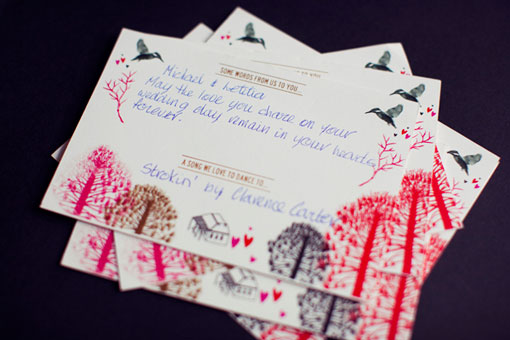 SOME WORDS FROM US TO YOU
Michael & Letitia
May the love you share on your
wedding day remain in your hearts
forever.
A SONG WE LOVE TO DANCE TO...
Strokin' by Clarence Carter